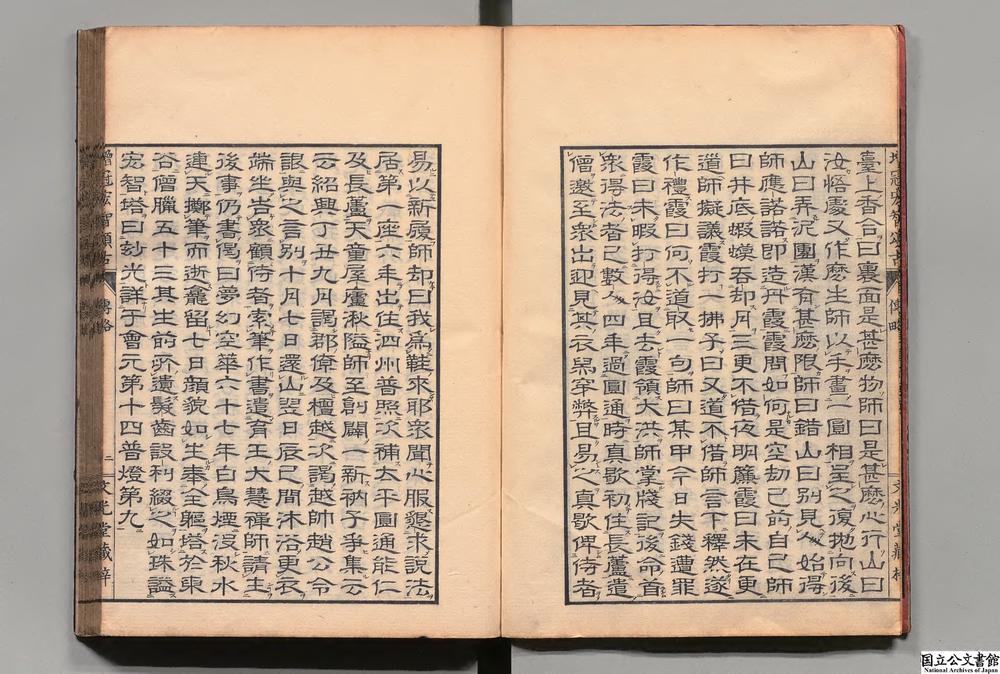 臺上香合曰裏面是甚麽物師曰是甚麽心行山曰
汝悟處又作麽生師以手畫一圓相呈之復抛向後
山曰弄泥團漢有甚麽限師曰錯山曰別見人始得
師應諾諾即造丹霞霞問如何是空劫已前自己師
曰井底蝦蟆吞却月三更不借夜明簾霞曰未在更
道師擬議霞打一拂子曰又道不借師言下釋然遂
作禮霞曰何不道取一句師曰某甲今日失錢遭罪
霞曰未暇打得汝且去霞領大洪師掌牋記後命首
衆得法者已數人四年過圓通時真歇初住長蘆遣
僧邀至衆出迎見其衣舄穿弊且易之真歇俾侍者
易以新履師却曰我爲鞋來耶衆聞心服懇求說法
居第一座六年出住泗州普照次補太平圓通能仁
及長蘆天童屋廬湫隘師至創闢一新衲子爭集云
云紹興丁丑九月謁郡僚及檀越次謁越帥趙公令
詪與之言別十月七日還山翌日辰巳間沐浴更衣
端坐告衆顧侍者索筆作書遺育王大慧禪師請主
後事仍書偈曰夢幻空華六十七年白鳥煙沒秋水
連天擲筆而逝龕留七日顏貌如生奉全軀塔於東
谷僧臘五十三其生前所遺髮齒設利綴之如珠謚
宏智塔曰玅光詳于會元第十四普燈第九
傳略
二
文光堂藏梓
國立公文書館
National Archives of Japan